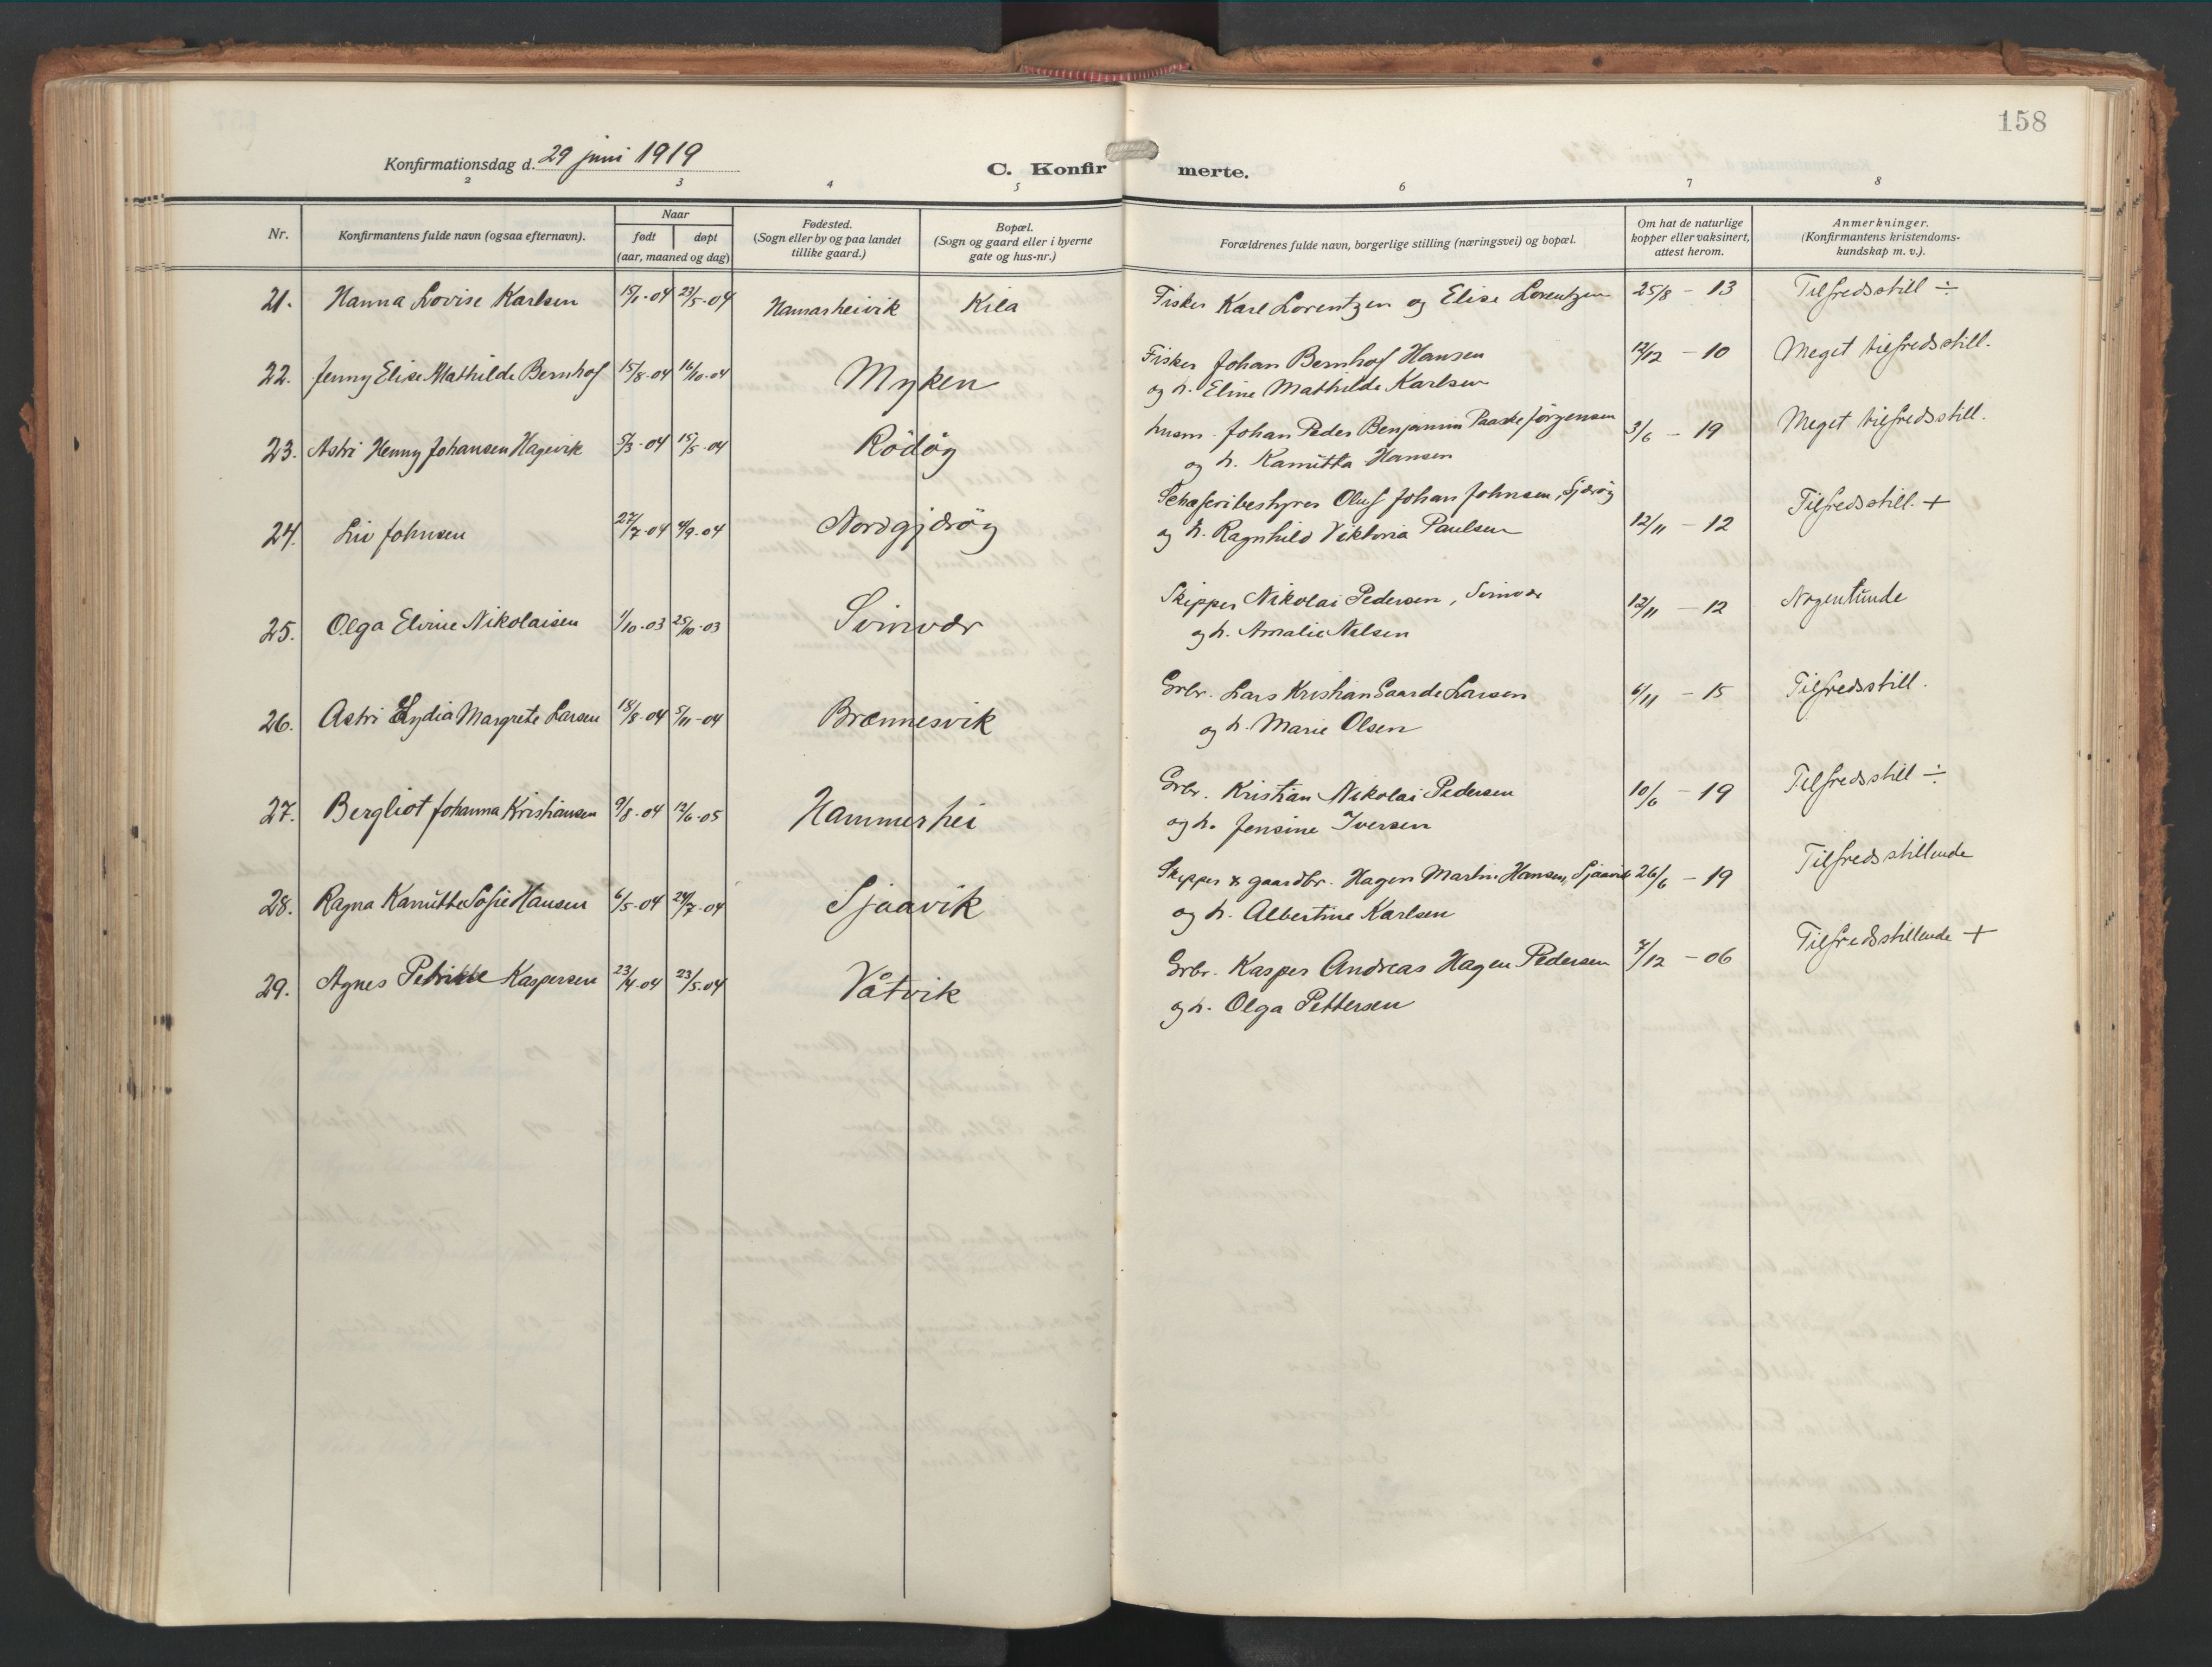 158
Konfirmationsdag d. 29 juni 1919
C. Konfirmerte.
2 3 4 5 6 7 8
Nr.
Konfirmantens fulde navn (ogsaa efternavn).
Naar
født døpt
(aar, maaned og dag)
Fødested.
(Sogn eller by og paa landet
tillike gaard.)
Bopæl.
(Sogn og gaard eller i byerne
gate og hus-nr.)
Forældrenes fulde navn, borgerlige stilling (næringsvei) og bopæl.
Om hat de naturlige
kopper eller vaksinert,
attest herom.
Anmerkninger.
(Konfirmantens kristendoms-
kundskap m. v.).
21. Hanna Lovise Karlsen 15/1-04 23/5-04 Hamarheivik Kila Fisker Karl Lorentzen og Elise Lorentzen 25/8 - 13 Tilfredsstill ÷
22. Jenny Elise Mathilde Bernhof 15/8-04 16/10-04 Myken Fisker Johan Bernhof Hansen 12/12 - 10 Meget tilfredsstill.
og h. Eline Mathilde Karlsen
23. Astri Henny Johansen Hagevik 5/3-04 15/5-04 Rödöy husm. Johan Peder Benjamin Paaske Jörgensen 3/6 - 19 Meget tilfredsstill.
og h. Kamitta Hansen
24. Liv Johnsen 27/7-04 4/9-04 Nordgjæröy Oluf Johan Johnsen, Gjæröy 12/11 - 12 Tilfredsstill. +
og h. Ragnhild Viktoria Paulsen
25. Olga Elvine Nikolaisen 1/10-03 25/10-03 Svinvær Skipper Nikolai Pedersen, Svinvær 12/11 - 12 Nogenlunde
og h. Amalie Nilsen
26. Astri Lydia Margrete Larsen 18/8-04 5/11-04 Brænnesvik Grbr. Lars Kristian Gaarde Larsen 6/11 - 15 Tilfredsstill.
og h. Marie Olsen
27. Bergliot Johanna Kristiansen 9/8-04 12/6-05 Hammerhei Grbr. Kristian Nikolai Pedersen 10/6 - 19 Tilfredsstill ÷
og h. Jensine Iversen
28. Ragna Kamitte Sofie Hansen 6/5-04 24/7-04 Sjaavik Skipper & gaardbr. Hagen Martin Hansen, Sjaavik 26/6 - 19 Tilfredsstillende
og h. Albertine Karlsen
29. Agnes Petrikke Kaspersen 23/4-04 23/5-04 Våtvik Grbr. Kasper Andreas Hagen Pedersen 7/12 - 06 Tilfredsstillende +
og h. Olga Pettersen